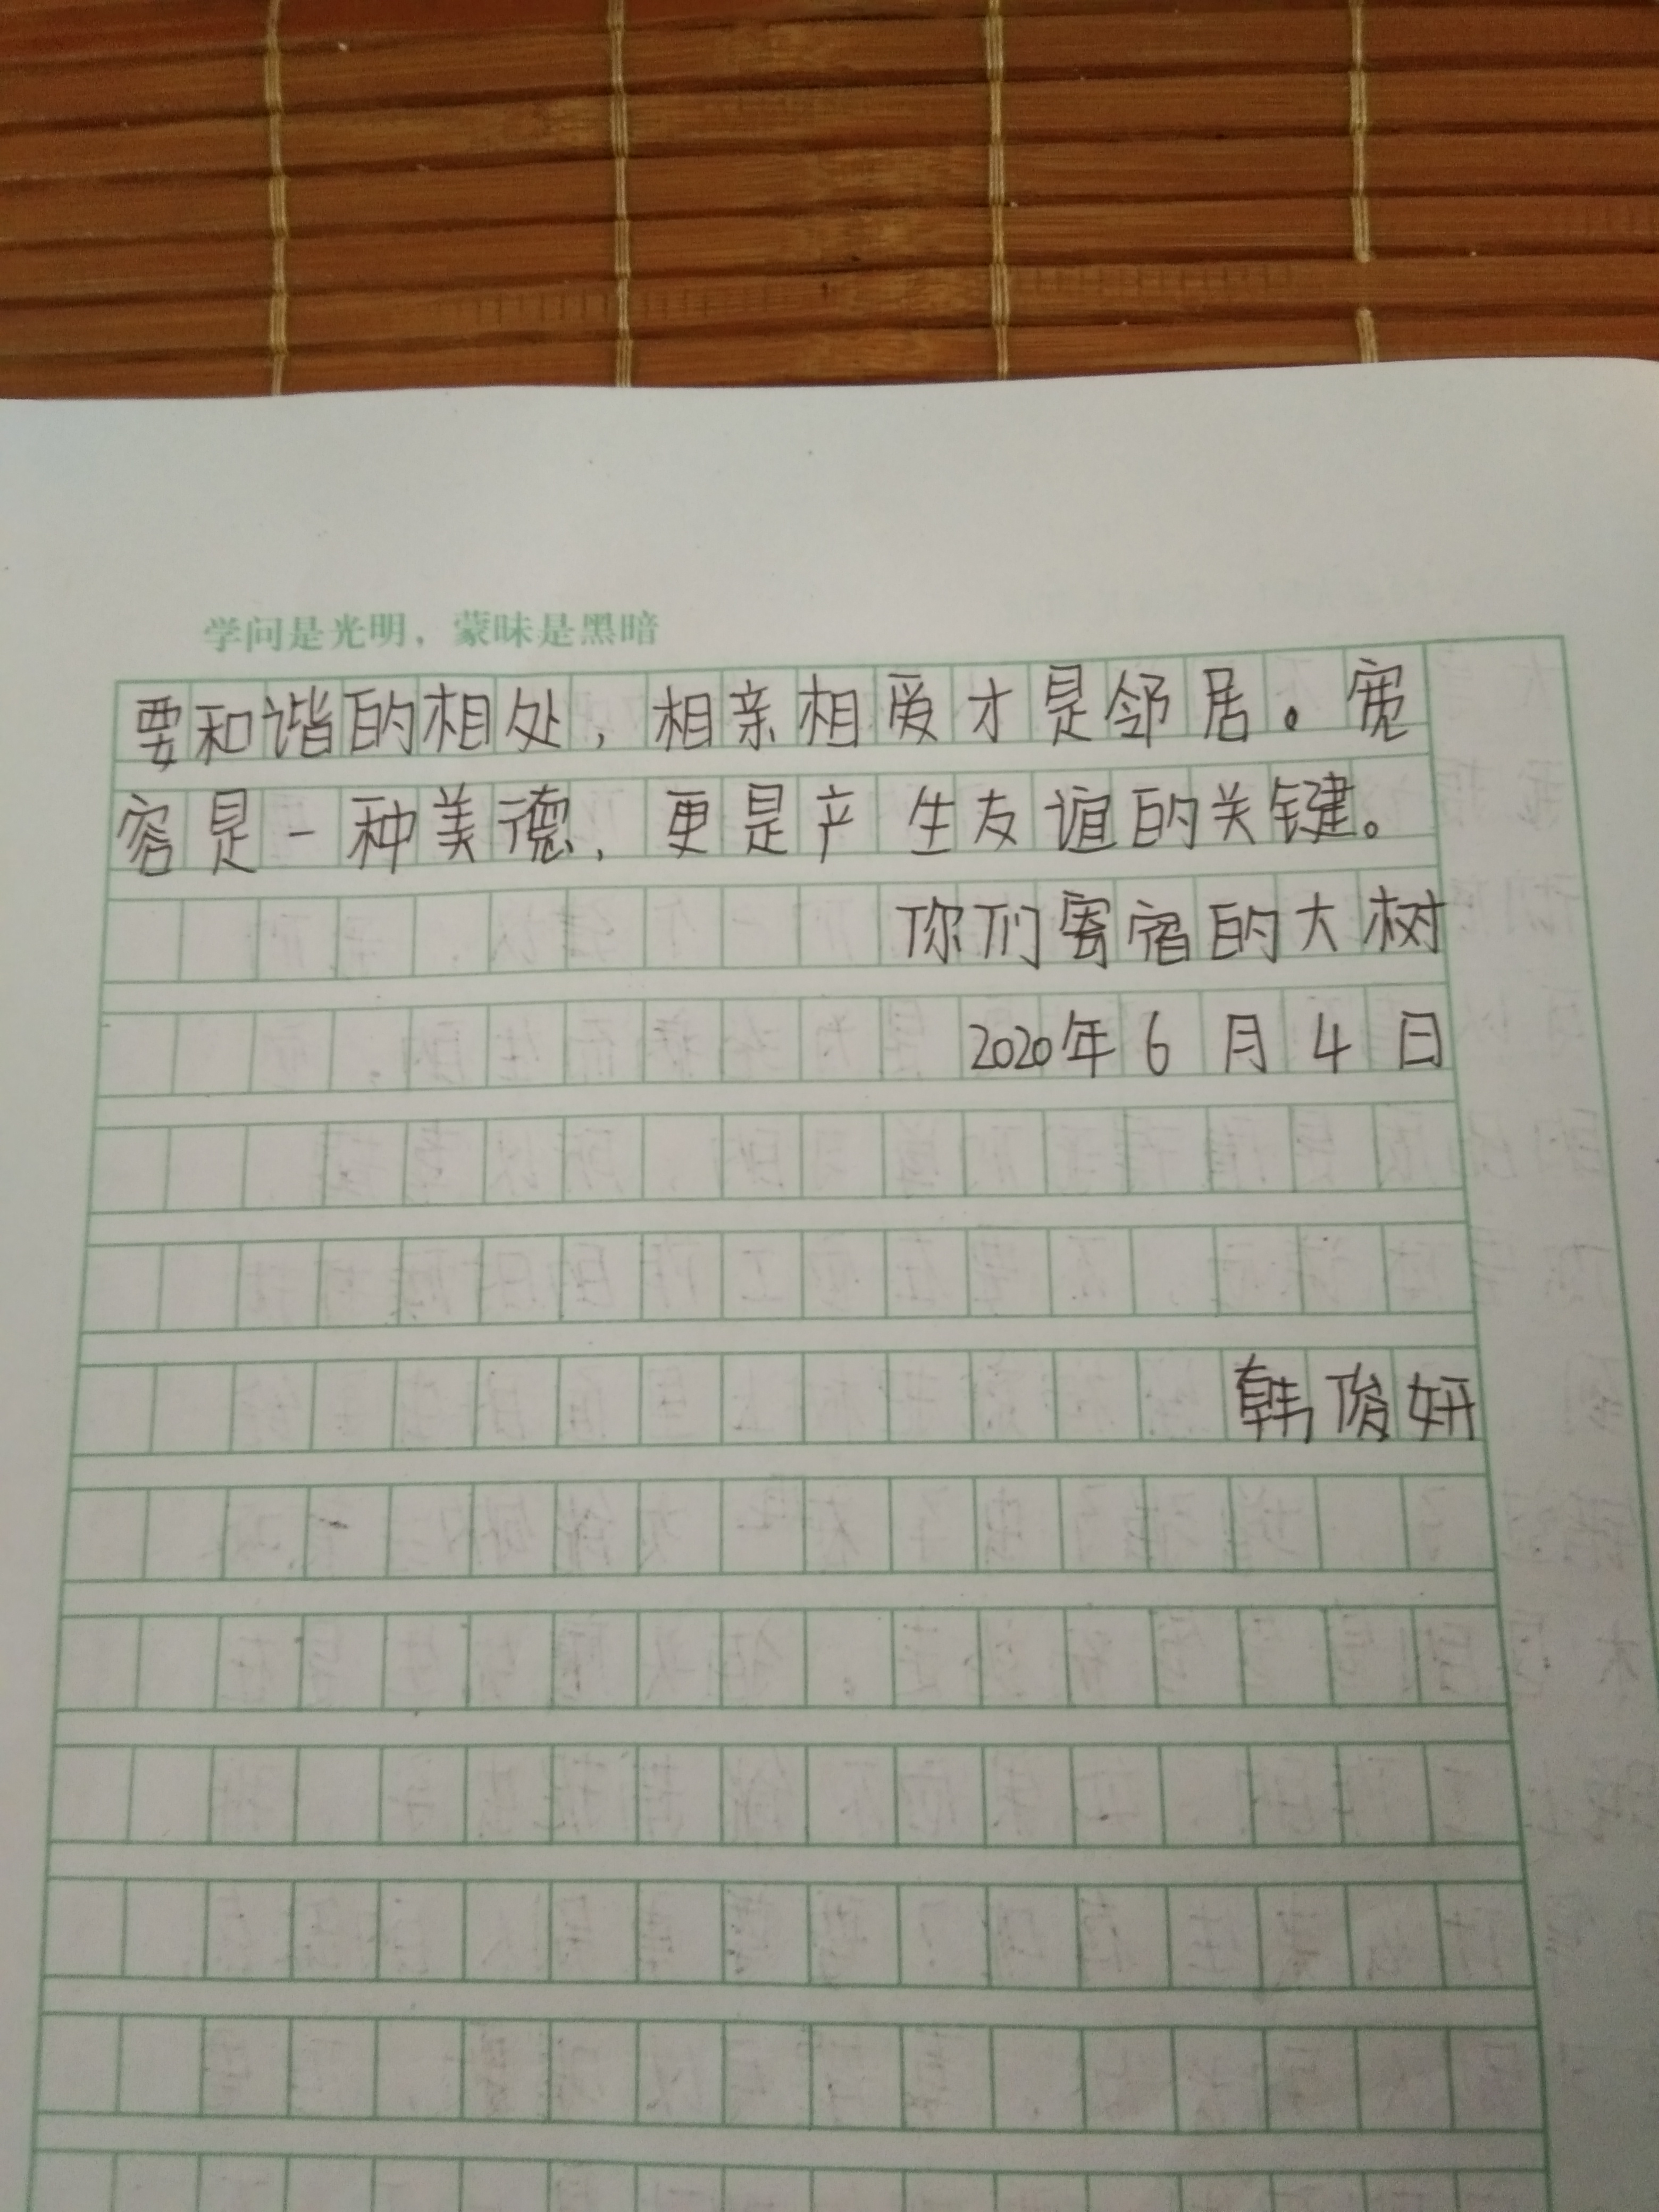 学问是光明，蒙昧是黑暗
要和谐的相处，相亲相爱才是邻居。宽
容是一种美德，更是产生友谊的关键。
你们寄宿的大树
2020年6月4日
韩俊妍